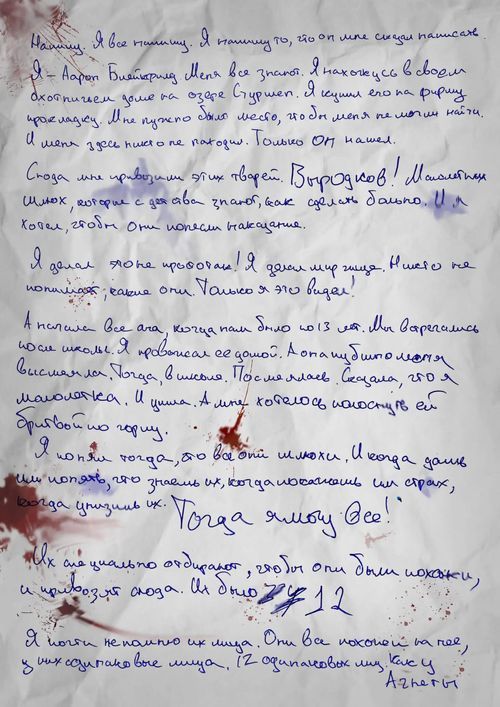 Напишу. Я все напишу. Я напишу то, что он мне сказал написать.
Я – Аарон Меня все знают. Я нахожусь в своем
охотничьем доме на озере Я купил его на фирму
прокладку. Мне нужно было место, чтобы меня не могли найти.
И меня здесь никто не находил. Только ОН нашел.
Сюда мне привозили этих тварей. Выродков! Малолетних
шлюх, которые с детства знают, как сделать больно. И я
хотел, чтобы они понесли наказание.
Я делал это не просто так! Я делал мир чище. Никто не
понимает, какие они. Только я это видел!
А начала все она, когда нам было по 13 лет. Мы встречались
после школы. Я провожал ее домой. А она публично меня
высмеяла. Тогда, в школе. Посмеялась. Сказала, что я
малолетка. И ушла. А мне хотелось полоснуть ей
бритвой по горлу.
Я понял тогда, что все они шлюхи. И когда даешь
им понять, что знаешь их, когда покажешь им страх,
когда унизишь их. Тогда я могу Все!
Их специально отбирают, чтобы они были похожи,
и привозят сюда. Их было 12
Я почти не помню их лица. Они все похожи на нее,
у них одинаковые лица. 12 одинаковых лиц. Как у
Агнеты